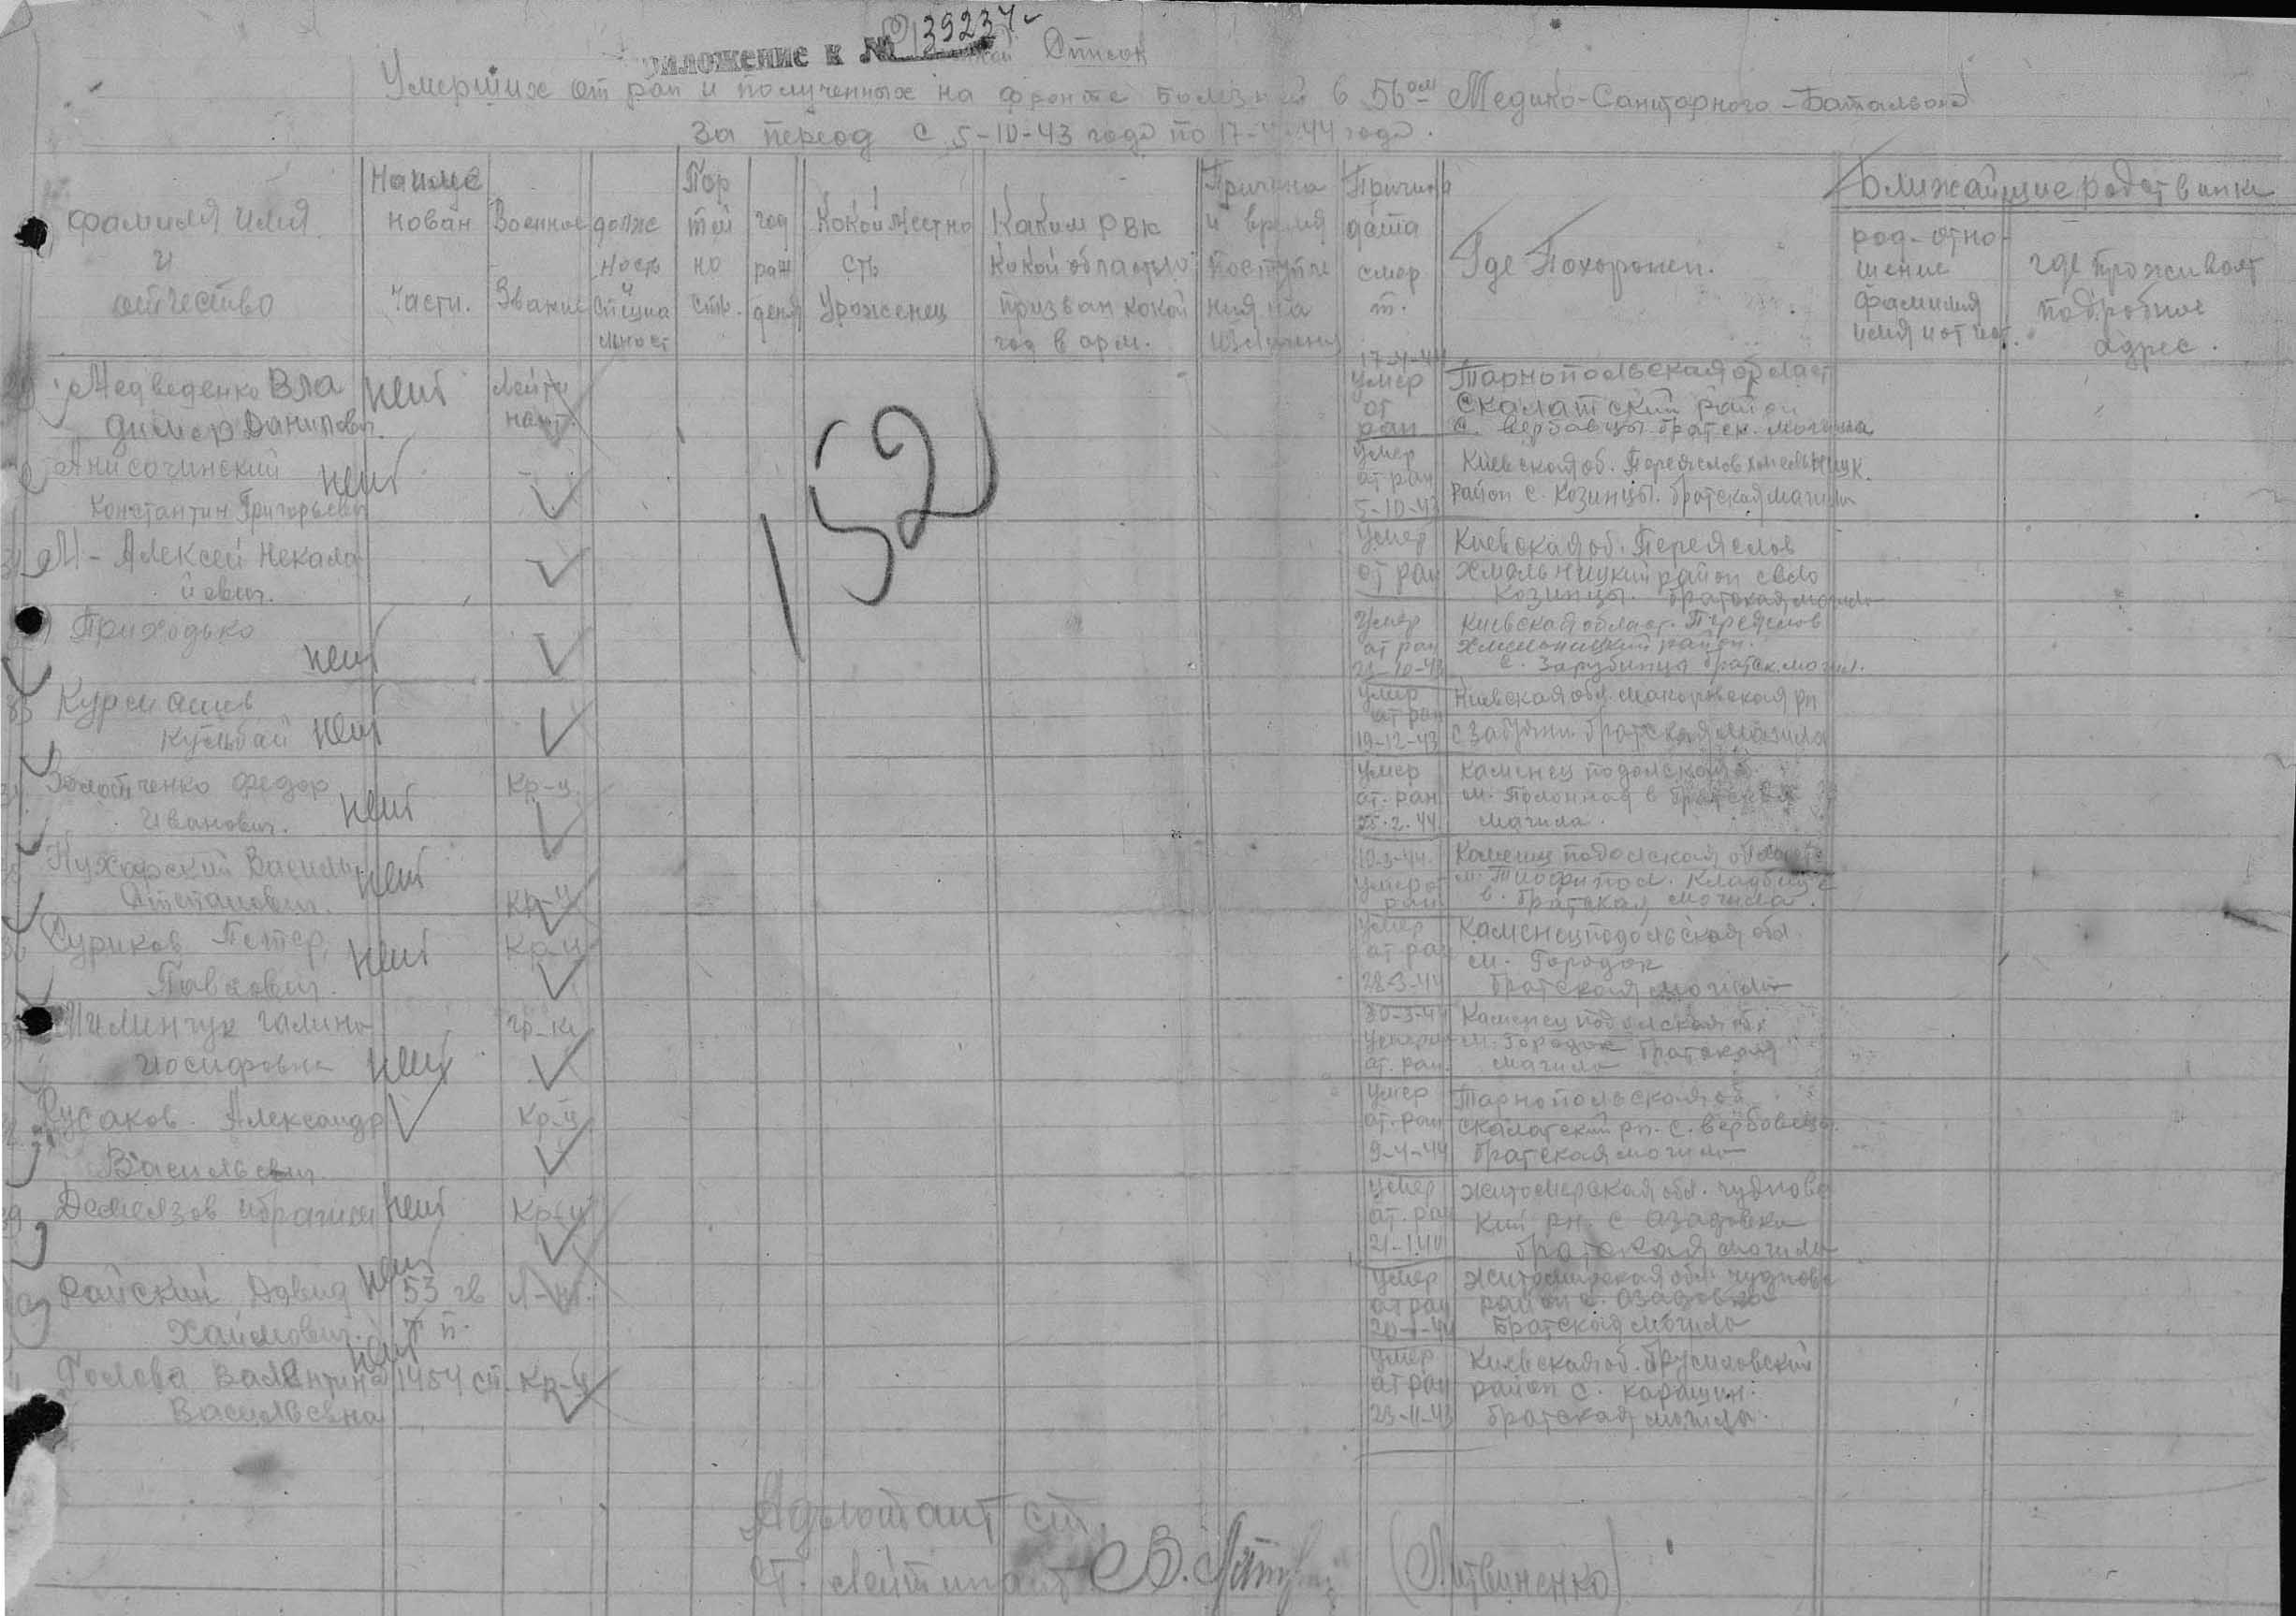 39237
приложение к №
Список
Умерших от ран и полученных на фронте болезней в 56ом Медико-Санитарного-Баталиона
За период с 5-10-43 года по 17- -44 года.
Фамилия имя
и
отчество
Наиме
нован
части.
Военное
Звание
долже
ность
и
специа
льност
Пар
тей
но
сть.
год
раж
дения
Какой местно
сть
Уроженец
Каким РВК
Какой областью
призван какой
год в арм.
Причина
и время
поступле
ния на
излечения
Причина
дата
смер
т.
Где Похоронен.
Ближайшие родственики
род-отно-
шение
фамилия
имя и отчест.
где проживает
подробное
адрес.
Медведенко Вла
димер Данилович.
нет
Лейте
нант.
17-4-44
умер
от
ран
Тарнопольская област
Скалатский район
с. Вербовцы братск. могила
Анисочинский
Константин Григорьевич
нет
умер
от ран
5-10-43
Киевская об. Переяслов хмельницк.
район с. Козинцы. братская могила
М- Алексей Некала
йович.
умер
от ран
Киевская об. Переяслов
Хмельницкий район село
Козинцы. братская могила
Приходько
нет
умер
от ран
23-10-43
Киевская област. Переяслов
Хмельницкий район.
с. Зарубинцы братск. могил.
Курманив
Кульбай
нет
умер
от ран
19-12-43
Киевская обл. Макоровская рн
с Забуяни братская могила
Золотченко Федор
Иванович.
нет
Кр-ц.
умер
от. ран
25.2.44
Каменец подольская о.
м. Полонная в братская
могила.
Кухарский Василий
Степанович.
нет
Кр-ц
10-3-44
умер от
ран
Каменец подольская область
м. Теофипол. кладбище
в. братская могила.
Суриков Петер
Павлович.
нет
Кр-ц
умер
от ран
28-3-44
Каменецподольская обл.
м. Городок
братская могила
Милинчук Галина
Иосифовна
нет
гр-ка
30-3-44
умерла
от. ран.
Каменец подольская об.
м. Городок братская
могила
Русаков. Александр
Васильевич.
Кр-ц
умер
от. ран
9-4-44
Тарнопольская об.
Скалатский рн. с. Вербовецы.
братская могила
Демелзов Ибрагим
нет
Кр-ц
умер
от. ран
21-1-44
Житомерская обл. Чуднов
кий рн. с Озадовка
братская могила
Райский Давид
Хаимович.
нет
53 гв
т п.
Л-нт.
умер
от ран
20-1-44
Житомирская обл. Чуднов
район с. Озадовка
братская могила
Голова Валентина
Васильевна
нет
1454 сп.
Кр-ц
умер
от ран
23-11-43
Киевская об. Брусиловский
район с. Карашин.
братская могила.
152
Адьютант ст.
ст. лейтинант
(Литвиненко)